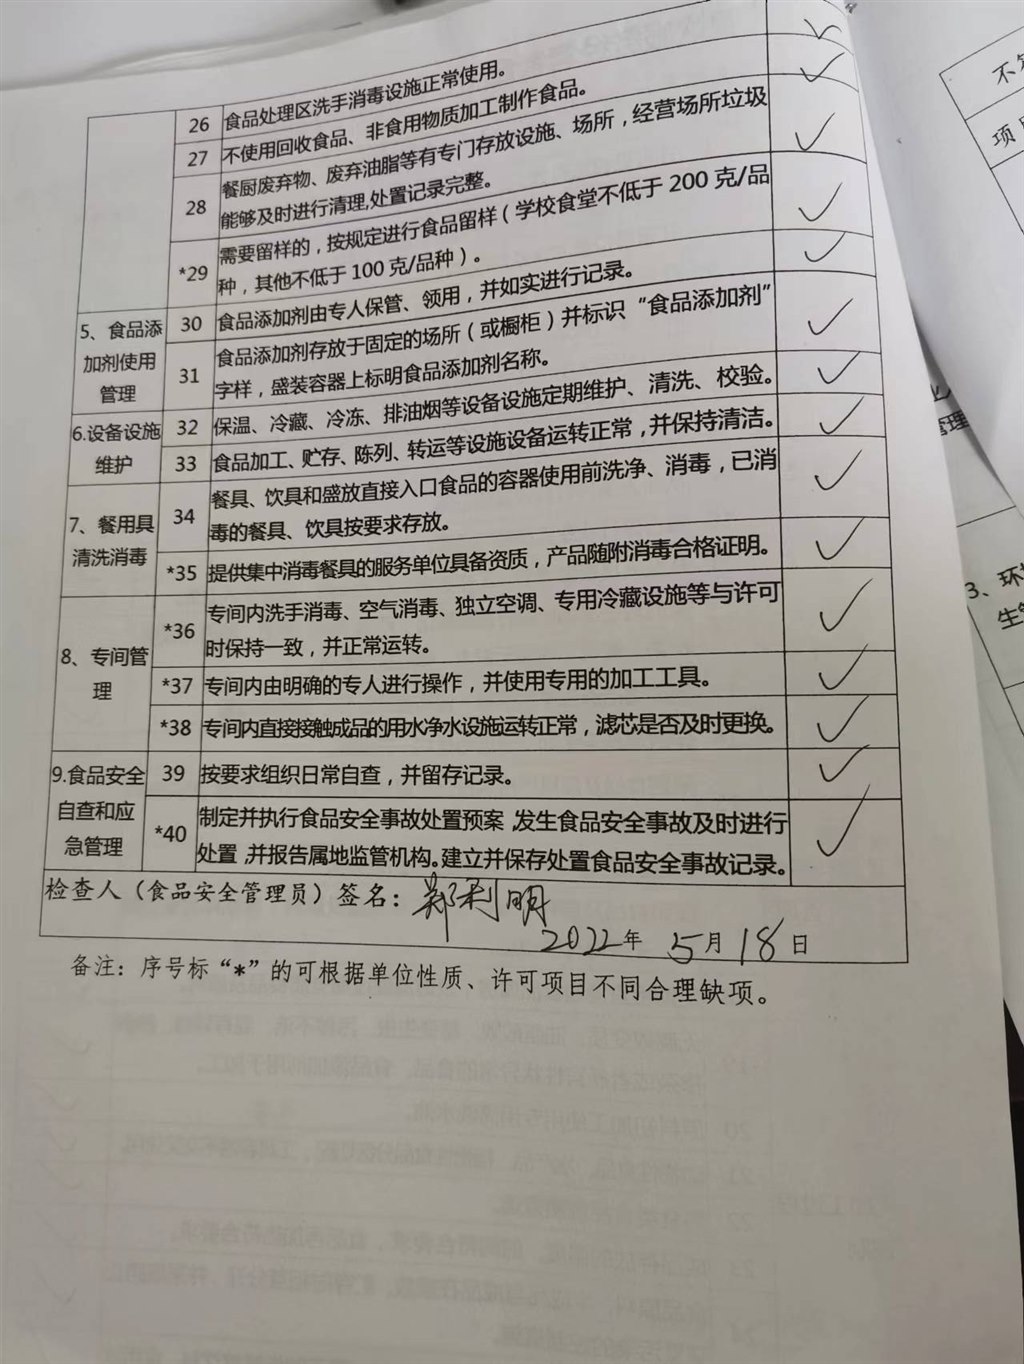 26 食品处理区洗手消毒设施正常使用。 ✓
27 不使用回收食品、非食用物质加工制作食品。 ✓
28 餐厨废弃物、废弃油脂等有专门存放设施、场所，经营场所垃圾 ✓
能够及时进行清理,处置记录完整。
*29 需要留样的，按规定进行食品留样（学校食堂不低于200克/品 ✓
种，其他不低于100克/品种）。
5、食品添
加剂使用
管理
30 食品添加剂由专人保管、领用，并如实进行记录。 ✓
31 食品添加剂存放于固定的场所（或橱柜）并标识“食品添加剂” ✓
字样，盛装容器上标明食品添加剂名称。
6.设备设施
维护
32 保温、冷藏、冷冻、排油烟等设备设施定期维护、清洗、校验。 ✓
33 食品加工、贮存、陈列、转运等设施设备运转正常，并保持清洁。 ✓
7、餐用具
清洗消毒
34 餐具、饮具和盛放直接入口食品的容器使用前洗净、消毒，已消 ✓
毒的餐具、饮具按要求存放。
*35 提供集中消毒餐具的服务单位具备资质，产品随附消毒合格证明。 ✓
8、专间管
理
*36 专间内洗手消毒、空气消毒、独立空调、专用冷藏设施等与许可 ✓
时保持一致，并正常运转。
*37 专间内由明确的专人进行操作，并使用专用的加工工具。 ✓
*38 专间内直接接触成品的用水净水设施运转正常，滤芯是否及时更换。 ✓
9.食品安全
自查和应
急管理
39 按要求组织日常自查，并留存记录。 ✓
*40 制定并执行食品安全事故处置预案,发生食品安全事故及时进行 ✓
处置,并报告属地监管机构。建立并保存处置食品安全事故记录。
检查人（食品安全管理员）签名：郑利明
2022年 5月18日
备注：序号标“*”的可根据单位性质、许可项目不同合理缺项。
项
管理
3、环
生